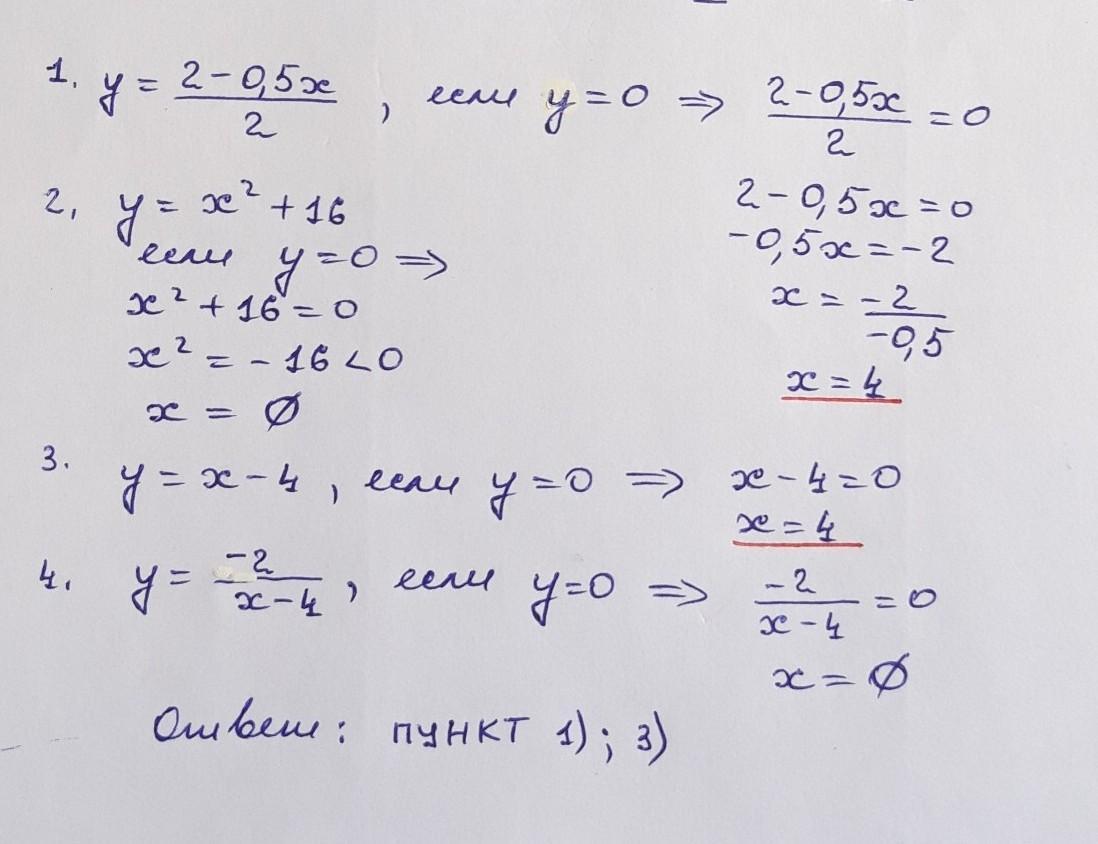 1. y = (2 - 0,5x)/2 , если y = 0 ⇒ (2 - 0,5x)/2 = 0
2 - 0,5x = 0
-0,5x = -2
x = -2/-0,5
x = 4
2, y = x² + 16
если y = 0 ⇒
x² + 16 = 0
x² = - 16 < 0
x = ∅
3. y = x - 4 , если y = 0 ⇒ x - 4 = 0
x = 4
4. y = -2/(x - 4) , если y = 0 ⇒ -2/(x - 4) = 0
x = ∅
Ответ: ПУНКТ 1); 3)